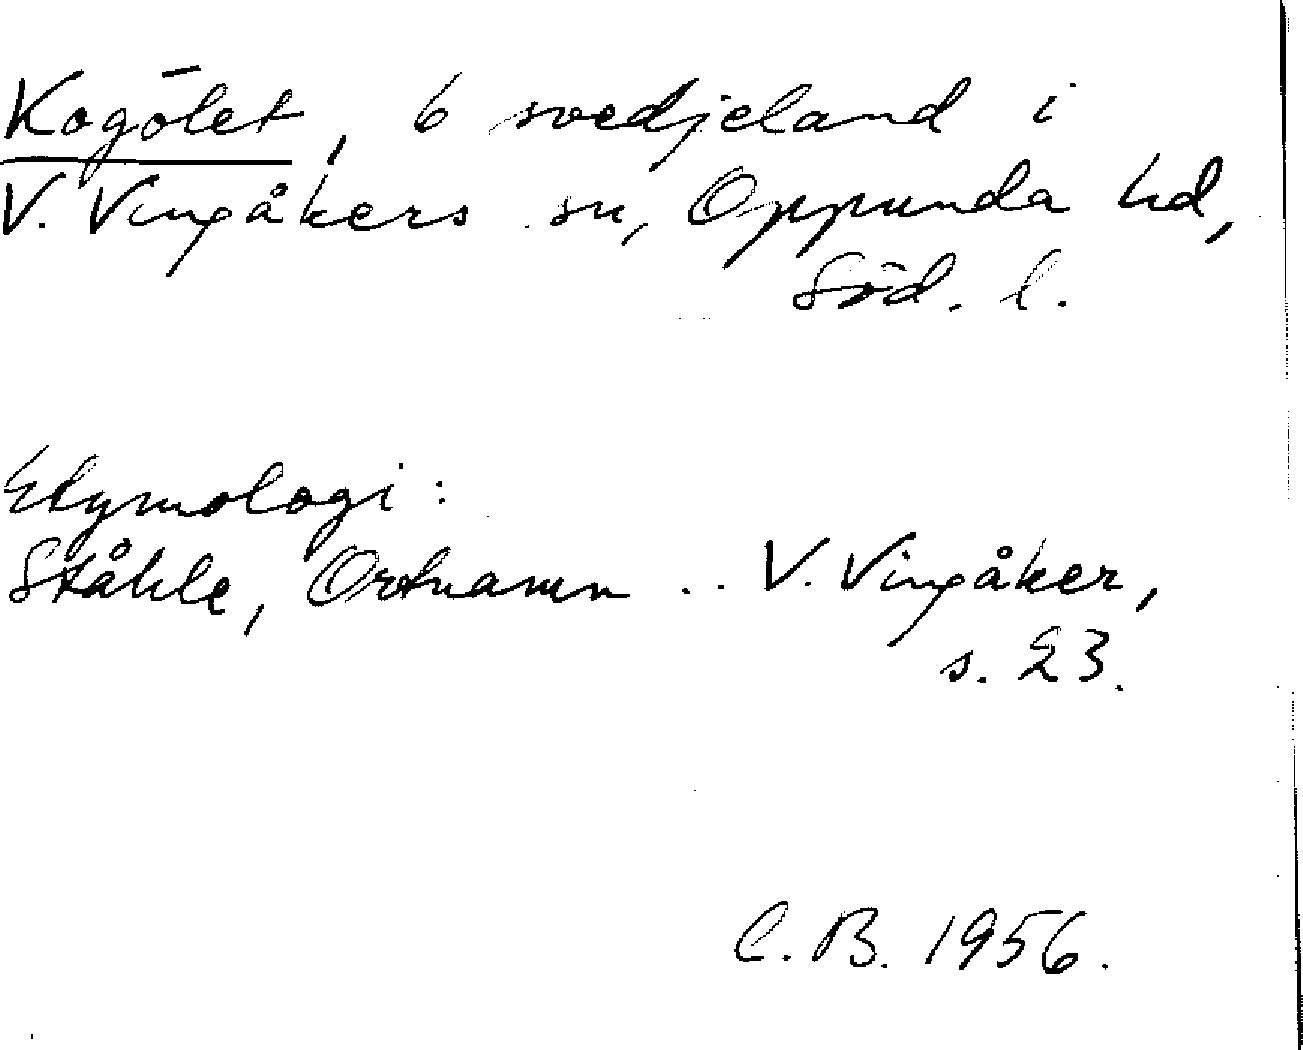 Kogölet, 6 svedjeland i
V. Vingåkers sn, Oppunda hd,
Söd. l.
Etymologi:
Ståhle, Ortnamn .. V. Vingåker,
s. 23.
C.B. 1956.